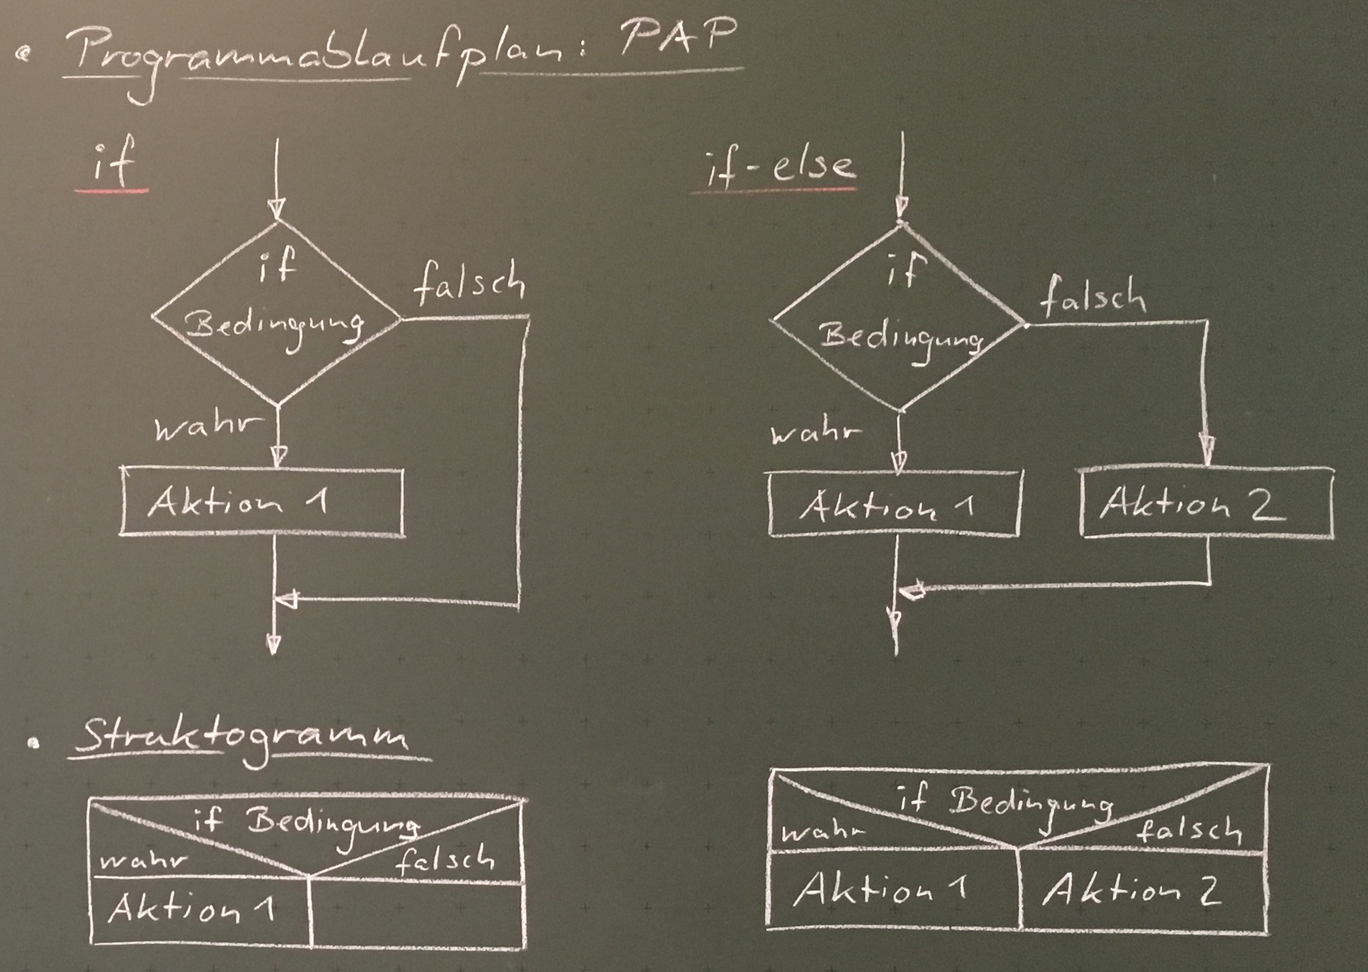 • Programmablaufplan: PAP
if
if
Bedingung
falsch
wahr
Aktion 1
if-else
if
Bedingung
falsch
wahr
Aktion 1
Aktion 2
• Struktogramm
if Bedingung
wahr
falsch
Aktion 1
if Bedingung
wahr
falsch
Aktion 1
Aktion 2